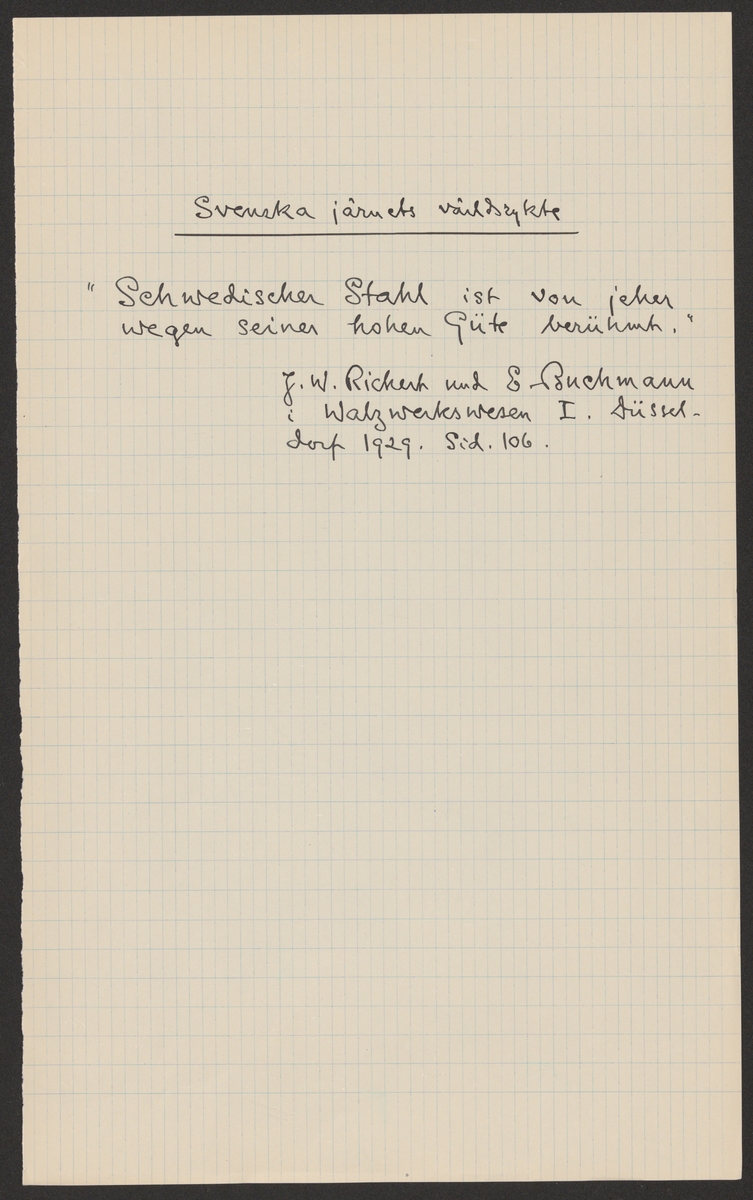 Svenska järnets världsrykte
"Schwedischer Stahl ist von jeher
wegen seiner hohen Güte berühmt."
J. W. Richert und E. Buchmann
i Walzwerkswesen I. Düssel-
dorf 1929. Sid. 106.